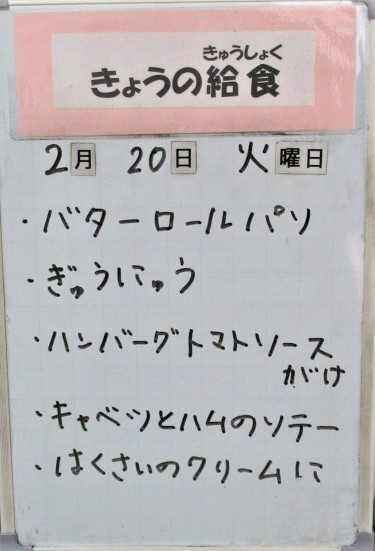 きゅうしょく
きょうの給食
2月 20日 火曜日
・バターロールパン
・ぎゅうにゅう
・ハンバーグトマトソース
がけ
・キャベツとハムのソテー
・はくさいのクリームに